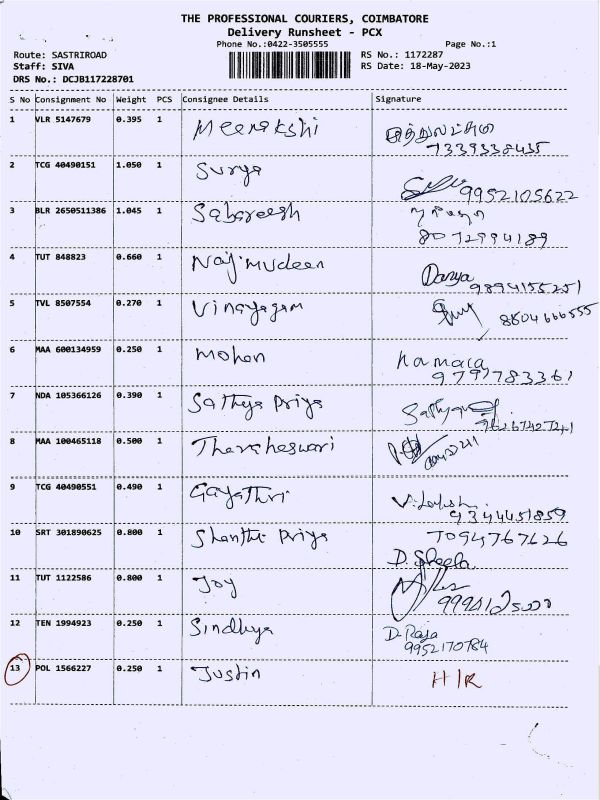 THE PROFESSIONAL COURIERS, COIMBATORE
Delivery Runsheet - PCX
Phone No.:0422-3505555 Page No.:1
Route: SASTRIROAD RS No.: 1172287
Staff: SIVA RS Date: 18-May-2023
DRS No.: DCJB117228701
S No Consignment No Weight PCS Consignee Details Signature
1 VLR 5147679 0.395 1 Meenakshi
7339338435
2 TCG 40490151 1.050 1 Surya
9952105622
3 BLR 2650511386 1.045 1 Sabareesh
8072994189
4 TUT 848823 0.660 1 Najimudeen Danya
9894155251
5 TVL 8507554 0.270 1 Vinayagam
8804666555
6 MAA 600134959 0.250 1 Mohan Kamala
9791783361
7 NDA 105366126 0.390 1 Sathya Priya
8 MAA 100465118 0.500 1 Tharaheswari
9 TCG 40490551 0.490 1 Gayathri
9344451859
10 SRT 301890625 0.800 1 Shanthi Priya 7094767626
D. Sheela
11 TUT 1122586 0.800 1 Joy
12 TEN 1994923 0.250 1 Sindhya D. Raja
9952170784
13 POL 1566227 0.250 1 Justin H/R